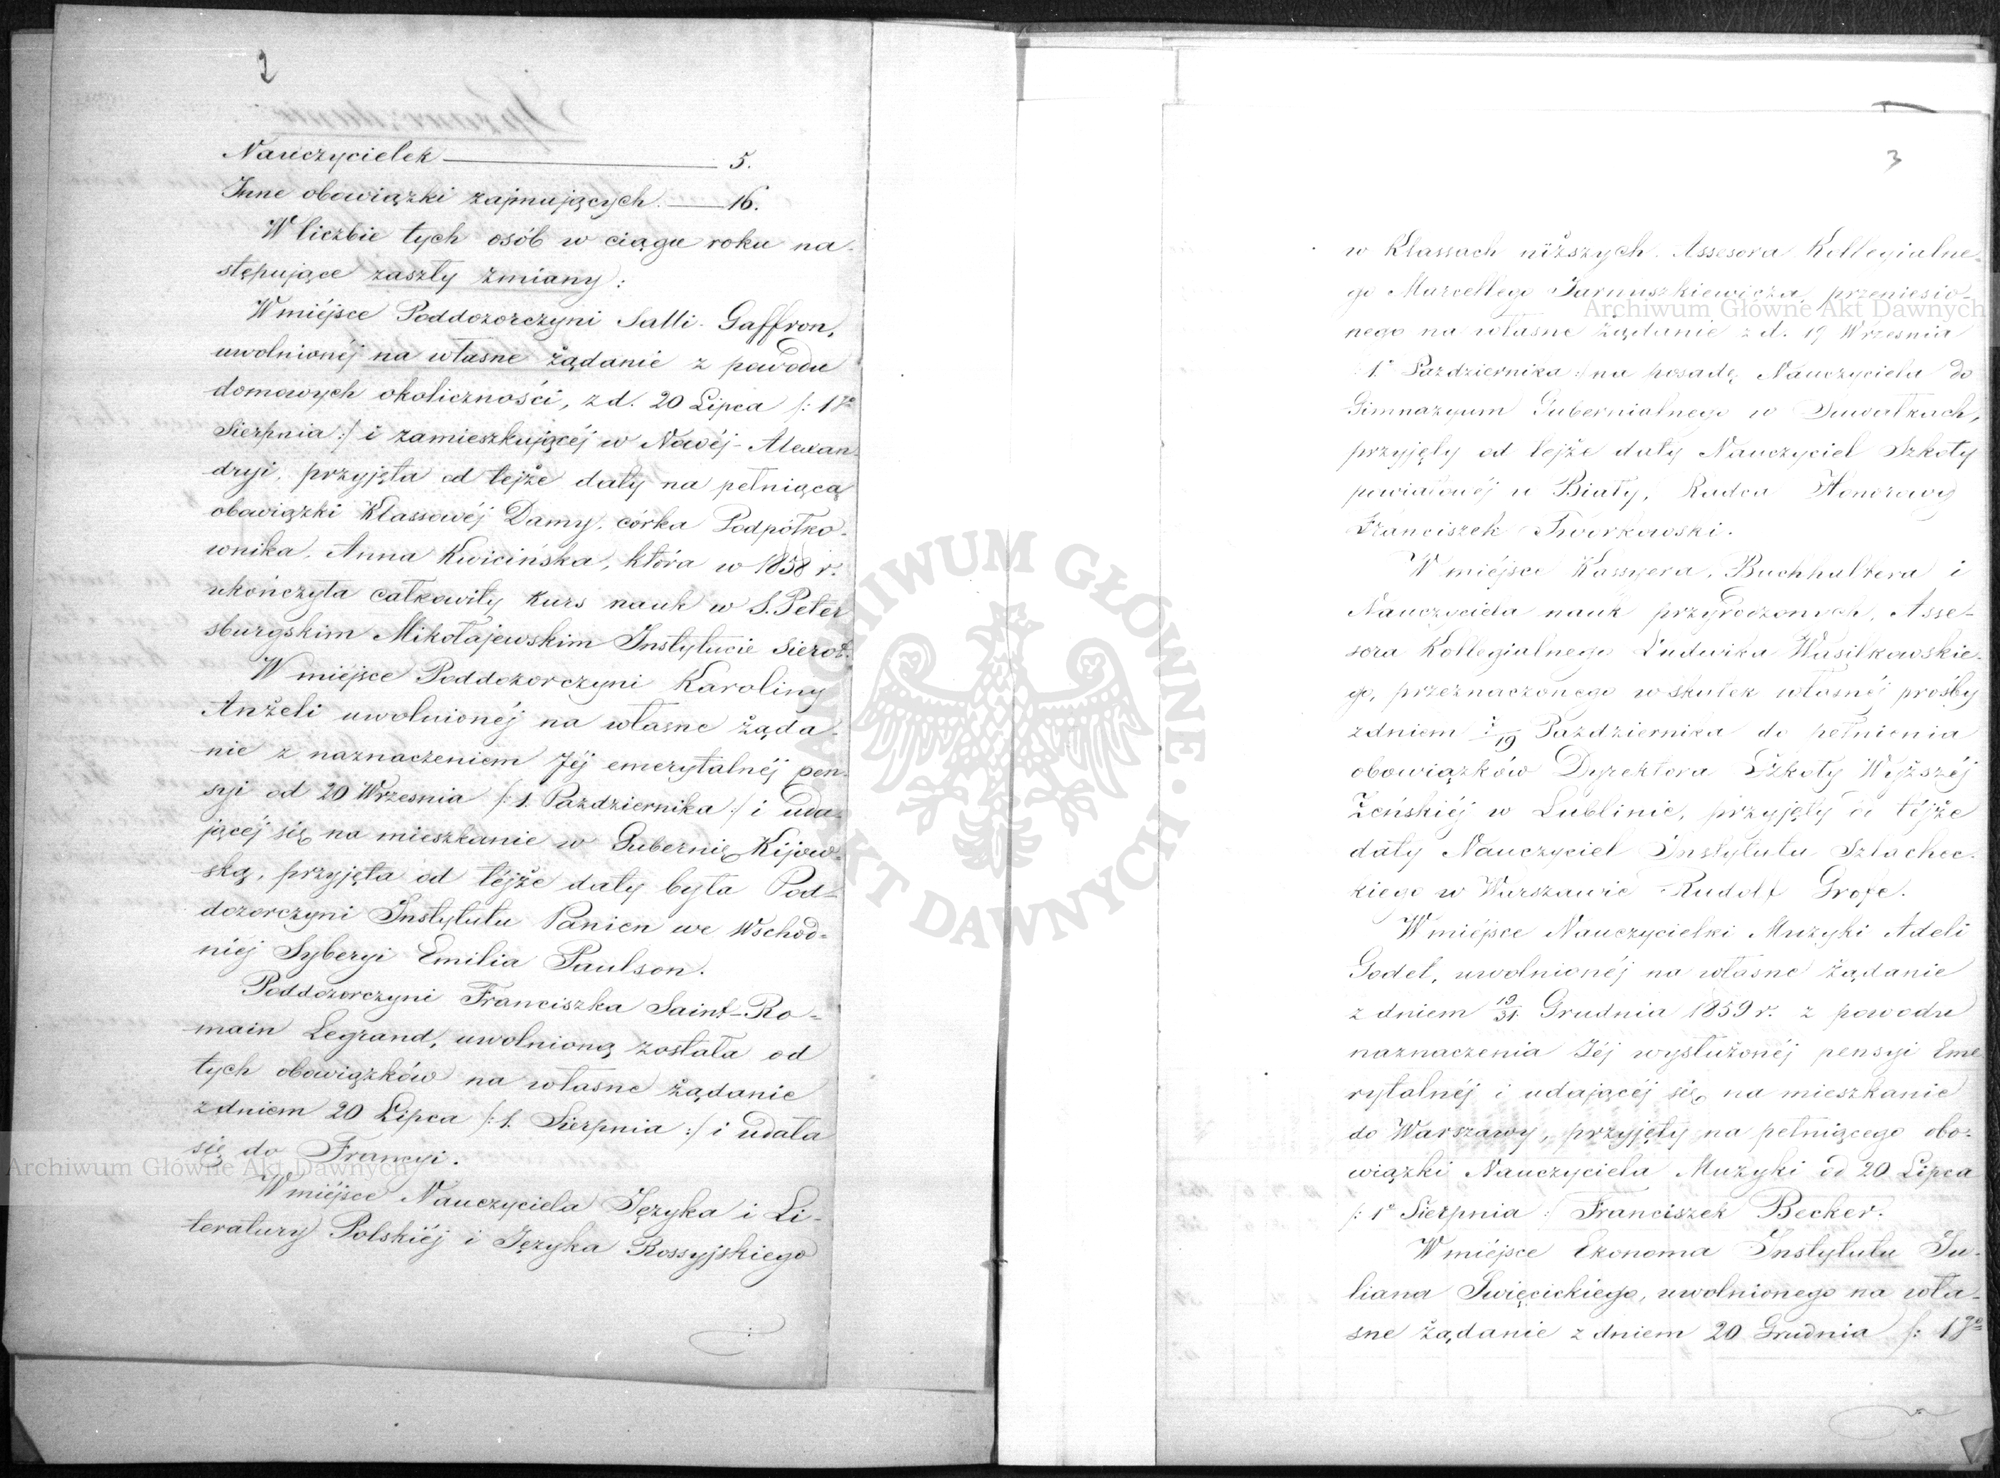 2
Nauczycielek 5.
Inne obowiązki zajmujących. 16.
W liczbie tych osób w ciągu roku na-
stępujące zaszły zmiany:
W miéjsce Poddozorczyni Salli Gaffron,
uwolnionéj na własne żądanie z powodu
domowych okoliczności, z d. 20 Lipca /: 1go
Sierpnia :/ i zamieszkującéj w Nowéj-Alexan-
dryi, przyjęta od tejże daty na pełniącą
obowiązki Klassowéj Damy, córka Podpółko-
wnika, Anna Kwicińska, która w 1858 r.
ukończyła całkowity kurs nauk w S. Peter
sburgskim Mikołajewskim Instytucie Sierot.
W miéjsce Poddozorczyni Karoliny
Anżeli uwolnionéj na własne żąda-
nie z naznaczeniem Jéj emerytalnéj pen-
syi od 20 Września /: 1. Października :/ i uda-
jącéj się na mieszkanie w Gubernię Kijow-
ską, przyjęta od téjże daty była Pod-
dozorczyni Instytutu Panien we Wschod-
niéj Syberyi Emilia Paulson.
Poddozorczyni Franciszka Saint-Ro-
main Legrand, uwolnioną została od
tych obowiązków na własne żądanie
z dniem 20 Lipca /: 1. Sierpnia :/ i udała
się do Francyi.
W miéjsce Nauczyciela Języka i Li-
teratury Polskiéj i Języka Rossyjskiego
3
w Klassach niższych, Assesora Kollegialne-
go Marcellego Jarnuszkiewicza, przeniesio-
nego na własne żądanie z d. 19 Września
/: 1o Października :/ na posadę Nauczyciela do
Gimnazyum Gubernialnego w Suwałkach,
przyjęty od tejże daty Nauczyciel Szkoły
powiatowéj w Biały, Radca Honorowy
Franciszek Tworkowski.
W miéjsce Kassyera, Buchhaltera i
Nauczyciela nauk przyrodzonych, Asse-
sora Kollegialnego Ludwika Wasilkowskie-
go, przeznaczonego w skutek własnéj prośby
z dniem 1/19 Października do pełnienia
obowiązków Dyrektora Szkoły Wyższéj
Żeńskiéj w Lublinie, przyjęty od téjże
daty Nauczyciel Instytutu Szlachec-
kiego w Warszawie Rudolf Grofe.
W miéjsce Nauczycielki Muzyki Adeli
Godel, uwolnionéj na własne żądanie
z dniem 19/31 Grudnia 1859 r. z powodu
naznaczenia Jéj wysłużonéj pensyi Eme
rytalnéj i udającéj się na mieszkanie
do Warszawy, przyjęty na pełniącego obo-
wiązki Nauczyciela Muzyki od 20 Lipca
/: 1o Sierpnia :/ Franciszek Becker.
W miéjsce Ekonoma Instytutu Ju-
liana Swięcickiego, uwolnionego na wła-
sne żądanie z dniem 20 Grudnia /: 1go
Archiwum Główne Akt Dawnych
Archiwum Główne Akt Dawnych
ARCHIWUM GŁÓWNE · AKT DAWNYCH ·